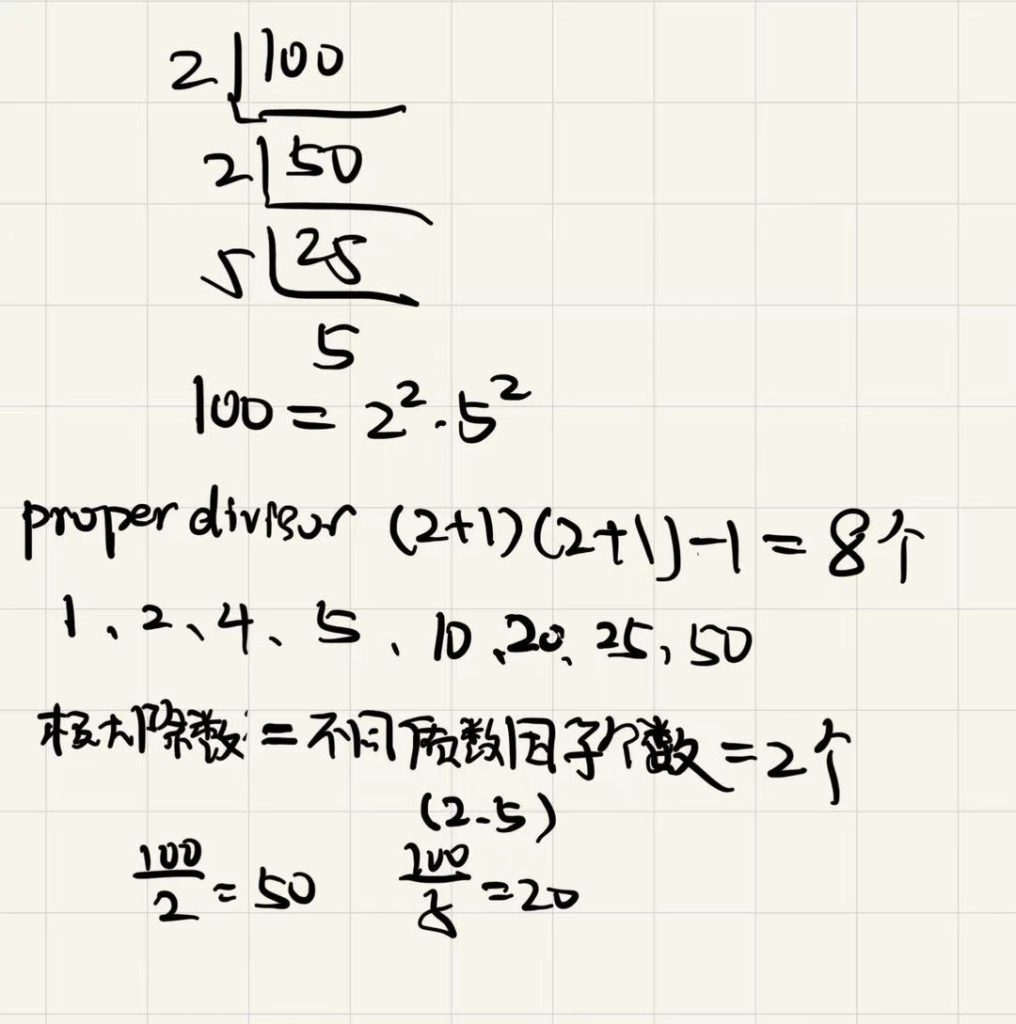 2 100
2 50
5 25
5
100 = 2² · 5²
proper divisor (2+1)(2+1)-1 = 8个
1、2、4、5、10、20、25、50
极大除数 = 不同质数因子个数 = 2个
(2.5)
100/2 = 50 100/5 = 20